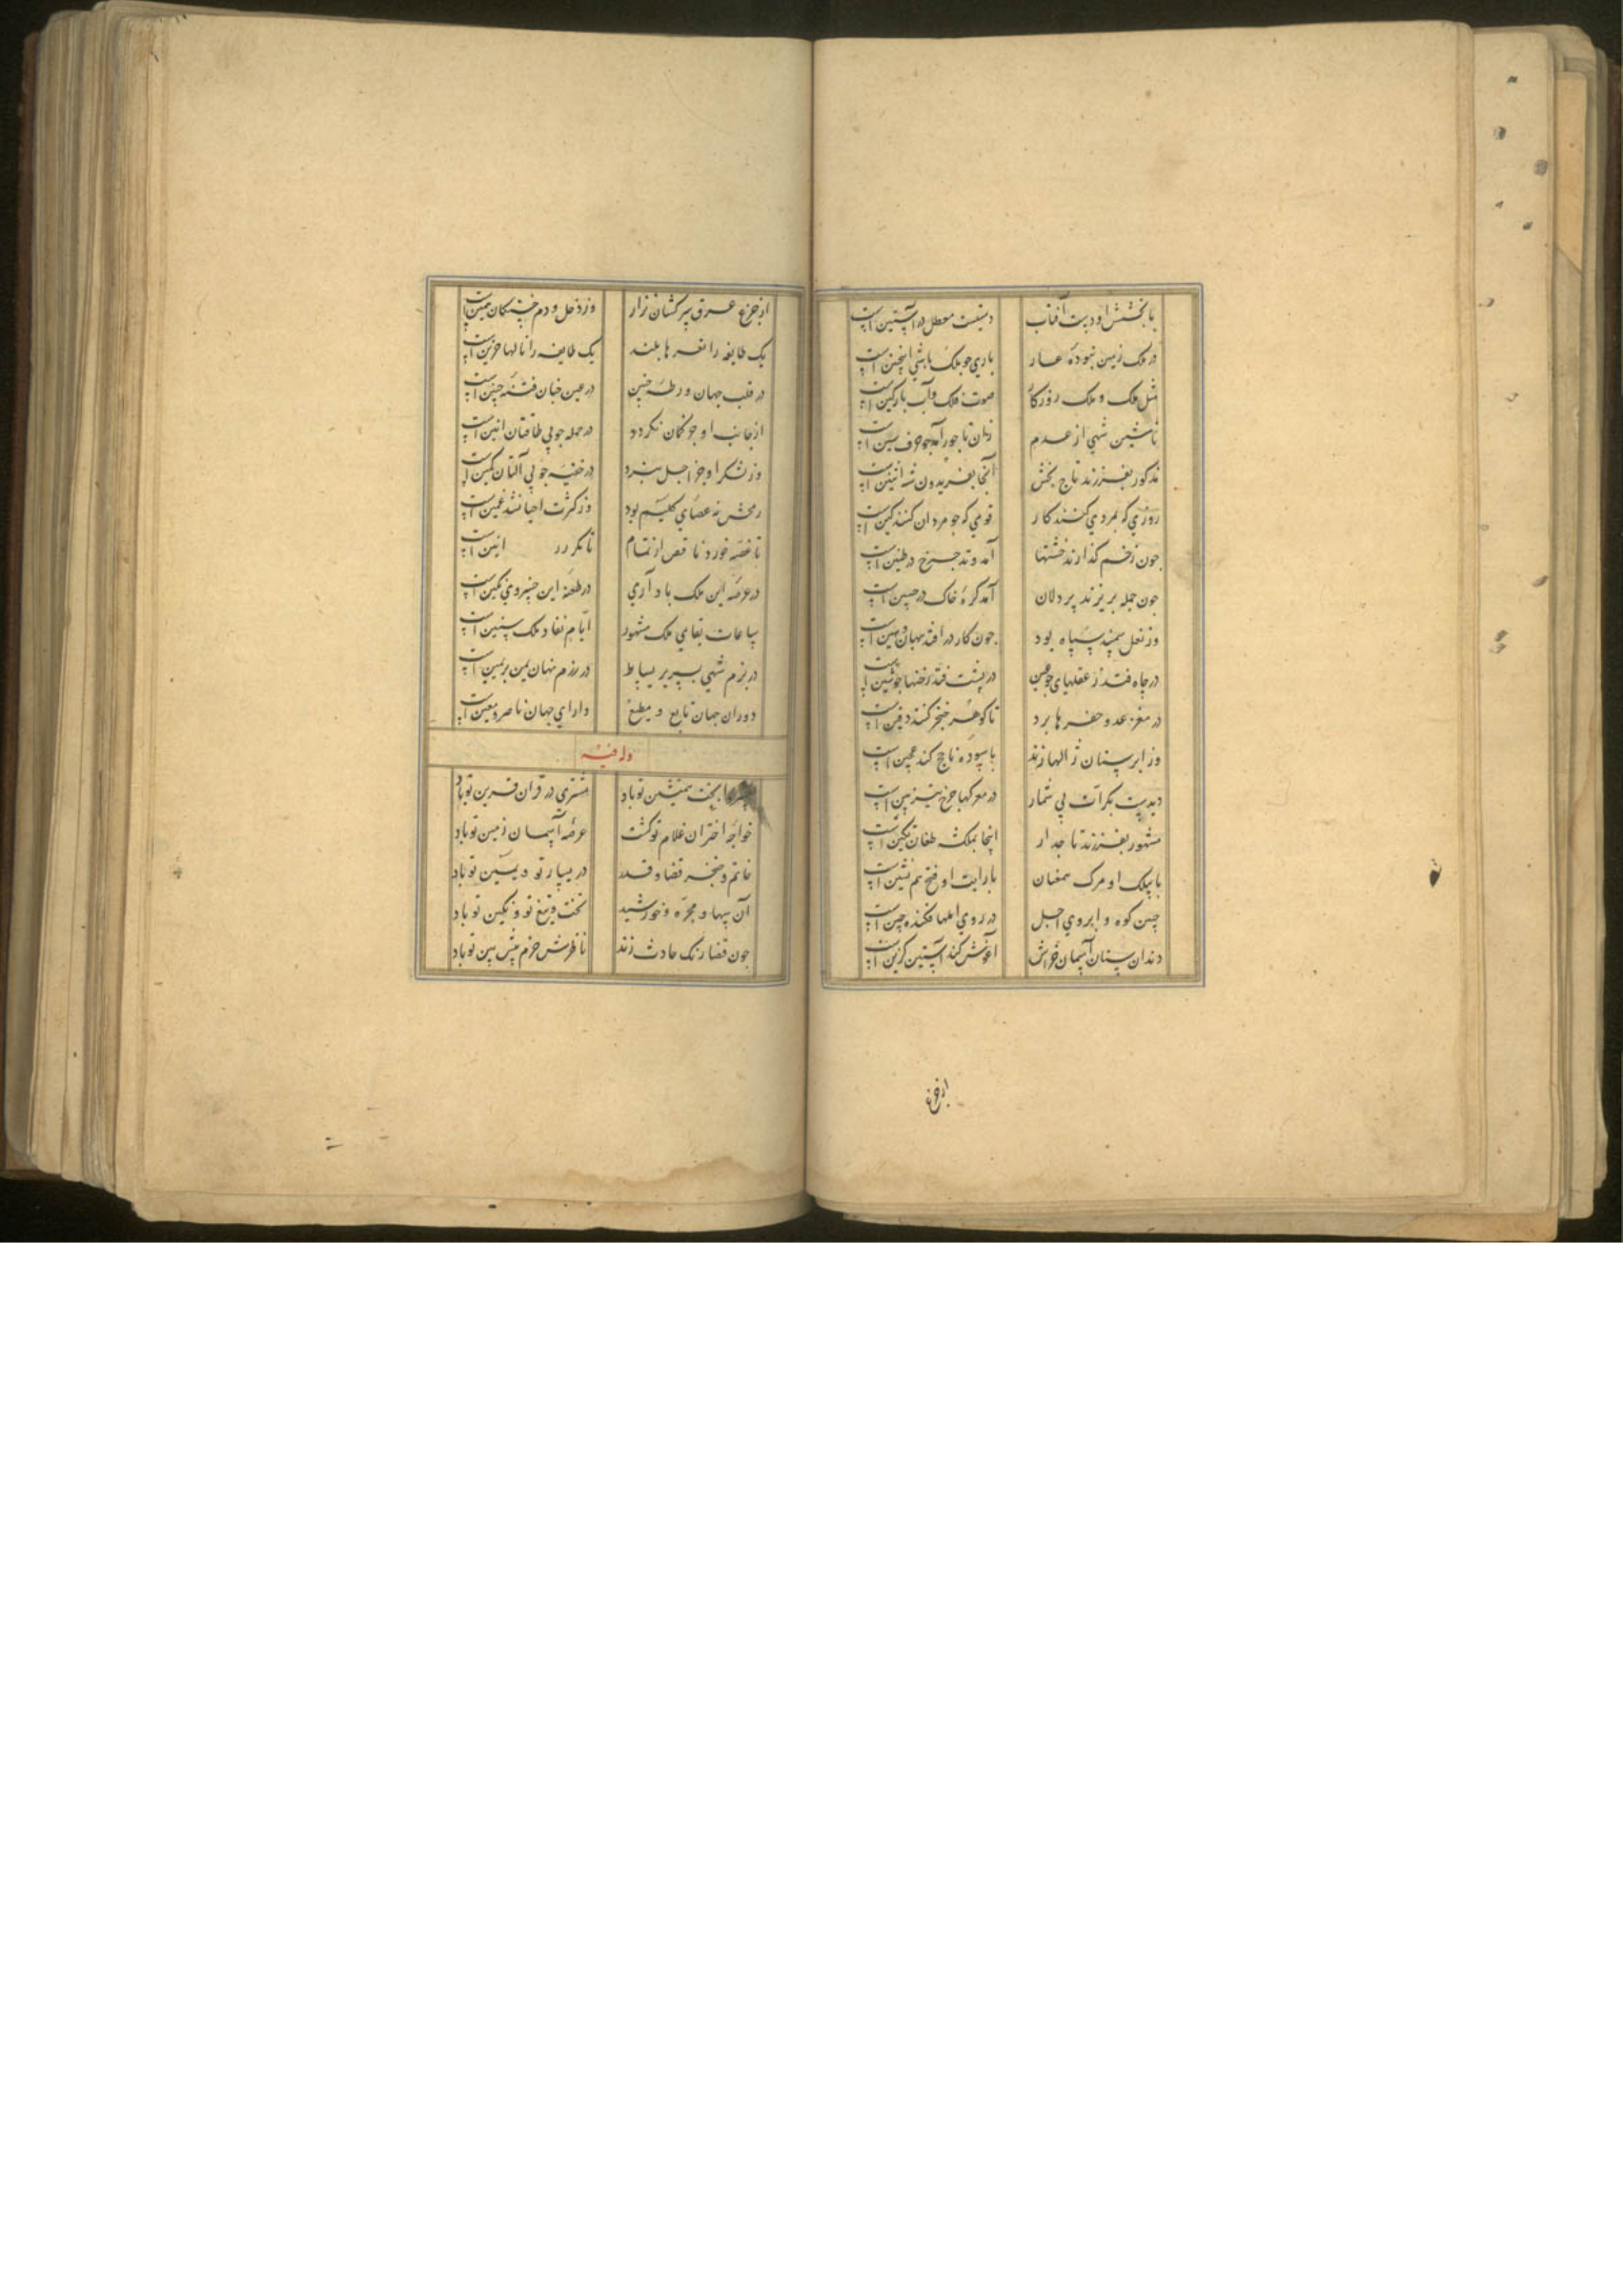 با بخشش او دست آفتاب دستیست معطل در آستین است
در ملک زمین نبوده عار باری جو ملک باشی اینچنین است
مثل ملک و ملک روزکار صوت ملک و آب بارکین است
نامد شهی از عدم
مذکور بفرزند تاج بخش آنجا بفریدون شه آبتین است
روزی که بمردی کنند کار قومی که جو مردان کنند کین است
جون زخم کذارند خشتها آمد و تد جرخ در طنین است
جون حمله بریزند پردلان آمد کرهٔ خاک در
وز نعل سمند سپاه بود جون کار در افتد مهان و مهین است
در جاه فتد ز عقلهای در پشت فتد زخمها
در مغز عدو حفرها برد تا کوهر خنجر کنند دفین است
وز ابر سنان ژالها زند با سوده ناجخ کند عجین است
دیدیت بکرات بی شمار در معرکها جرخ تیزبین است
مشهور بفرزند تاجدار اینجا بملکشه طغان تکین است
با بیلک او مرک همعنان با رایت او فتح هم نشین است
جین کوه و ابروی اجل در روی املها فکنده جین است
دندان سنان آسمان خراش آغوش کند آستین کزین است
از جرع
از جرع عرق سرکشان نزار وز ذحل و دم خستکان سمین است
یک طایفه را نعرها بلند یک طایفه را نالها حزین است
در قلب جهان ورطه جنین در عین جنان فتنه جنین است
از جانب او جو کمان نکردد در حمله جو بی طاقتان انین است
وز لشکر او جز اجل نبرد در خفیه جو بی آلتان کمین است
رمحش نه عصای کلیم بود وز کثرت احیا نشد غمین است
تا غصه خورد ناقص از تمام تا نکردد انین است
در عرصهٔ این ملک باد آری در طعنهٔ این خسروی مکین است
ساعات بقای ملک مشهور ایام نفاد ملک سنین است
در بزم شهی بسریر بساط در رزم نهان یمن بریمین است
دوران جهان تابع و مطیع دارای جهان ناصر و معین است
وله فیه
خسروا بخت همنشین تو باد مشتری در قران قرین تو باد
خواجهٔ اختران غلام تو کشت عرصهٔ آسمان زمین تو باد
خاتم و خنجر قضا و قدر در یسار تو و یمین تو باد
آن سها و مجره و خورشید تخت و تیغ تو و نکین تو باد
جون قضا رنک حادث زند ناظرش حزم پیش بین تو باد